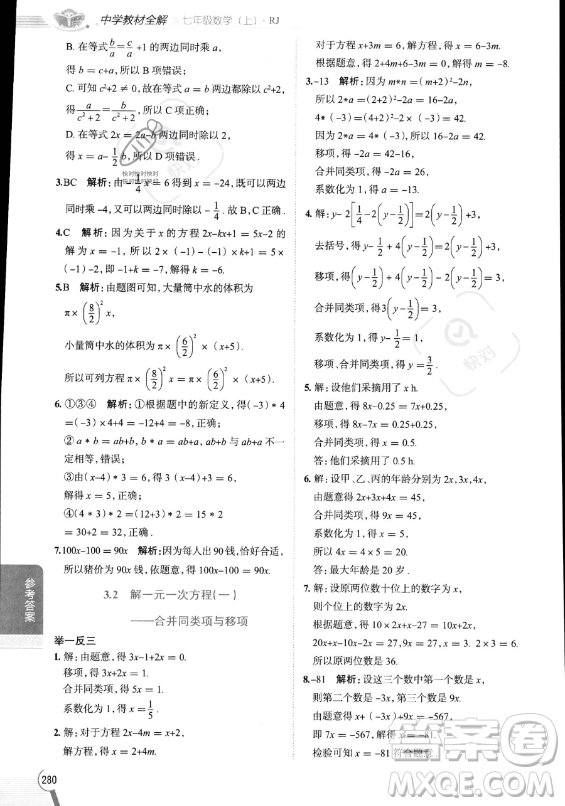 中学教材全解 七年级数学(上)·RJ
B. 在等式 a/c = b/c +1 的两边同时乘 c,
得 a = b+c,所以 B 项错误;
C. 可知 c²+2 ≠ 0,故在等式的两边同时除以 c²+2,
得 a/(c²+2) = b/(c²+2),所以 C 项正确;
D. 在等式 2a=b 的两边同时除以 2,
得 a= 1/2 b,所以 D 项错误.
3.BC 解析:由 -1/4 x = 6 得到 x = -24,既可以两边
同时乘 -4,也可以两边同时除以 -1/4.故选 BC.
4.C 解析:因为关于 x 的方程 2x-kx+1 = 5x-2 的
解为 x = -1,所以 2 × (-1) - (-1)k+1 = 5 ×
(-1) -2,即 -1+k = -7,所以 k = -6.
5.B 解析:由题图可知,大量筒中水的体积为
π × (8/2)² x,
小量筒中水的体积为 π × (6/2)² × (x+5).
所以可列方程 π × (8/2)² x = π × (6/2)² × (x+5).
6. ①③④ 解析:根据题中的新定义,得 (-3) * 4
= 4 × (-3) +4 = -12+4 = -8,①正确;
② a * b = ab+b,b * a = ab+a,ab+b 与 ab+a 不一
定相等,错误;
③由 (x-4) * 3 = 6,得 3(x-4) +3 = 6,
解得 x = 5,正确;
④(4 * 3) * 2 = (12+3) * 2 = 15 * 2 =
30+2 = 32,正确.
7.100x-100 = 90x 解析:因为每人出 90 钱,恰好合适,
所以猪价为 90x 钱,依题意,得 100x-100 = 90x.
3.2 解一元一次方程(一)
——合并同类项与移项
举一反三
1. 解:由题意,得 3x-1+2x = 0,
移项,得 3x+2x = 1.
合并同类项,得 5x = 1.
系数化为 1,得 x = 1/5.
2. 解:对于方程 4x+2m = x+2,
参考答案
280
对于方程 x+3m = 6,解得 x = 6-3m.
根据题意,得
解得 m = -8.
3.-13 解析:因为 m*n = (m+2)²-2n,
所以 2*a = (2+2)²-2a = 16-2a,
4 * (-3) = (4+2)²-2 × (-3) = 42.
因为 2*a = 4 * (-3),所以 16-2a = 42.
移项,得 -2a = 42-16,
合并同类项,得 -2a = 26.
系数化为 1,得 a = -13.
4. 解:y-2[1/4-2(y-1/2)]=2(y-1/2)+3,
去括号,得 y-1/2+4(y-1/2)=2(y-1/2)+3,
移项,得 (y-1/2)+4(y-1/2)-2(y-1/2)=3,
合并同类项,得 3(y-1/2)=3,
系数化为 1,得 y-1/2=1,
移项、合并同类项,得 y=3/2.
5. 解:设他们采摘用了 x h.
由题意,得 8x-0.25 = 7x+0.25,
移项,得 8x-7x = 0.25+0.25,
合并同类项,得 x = 0.5.
答:他们采摘用了 0.5 h.
6. 解:设甲、乙、丙的年龄分别为 2x,3x,4x,
由题意,得 2x+3x+4x = 45,
合并同类项,得 9x = 45,
系数化为 1,得 x = 5,
所以 4x = 20.
答:最大年龄为 20 岁.
7. 解:设原两位数十位上的数字为
则
20x+x = 10x+2x+27.
解得 x = 3.
所以这个两位数是 36.
8. -81 解析:设这三个数中第一个数为 x,
则第二个数是 -3x,第三个数是 9x.
由题意,得 x-3x+9x = -567.
合并同类项,得 7x = -567,
系数化为 1,得 x = -81.
检验可知 x = -81 符合题意.
快对
答案圈
MXQE.COM